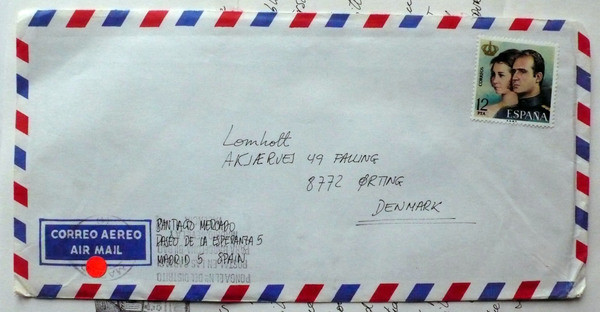 CORREOS
12
PTA
ESPAÑA
Lomholt
AKJÆRVEJ 49 FALLING
8772 ØRTING
DENMARK
CORREO AEREO
AIR MAIL
SANTIAGO MERCADO
PASEO DE LA ESPERANZA 5
MADRID 5 SPAIN
PONGA EL Nº DEL DISTRITO
POSTAL EN